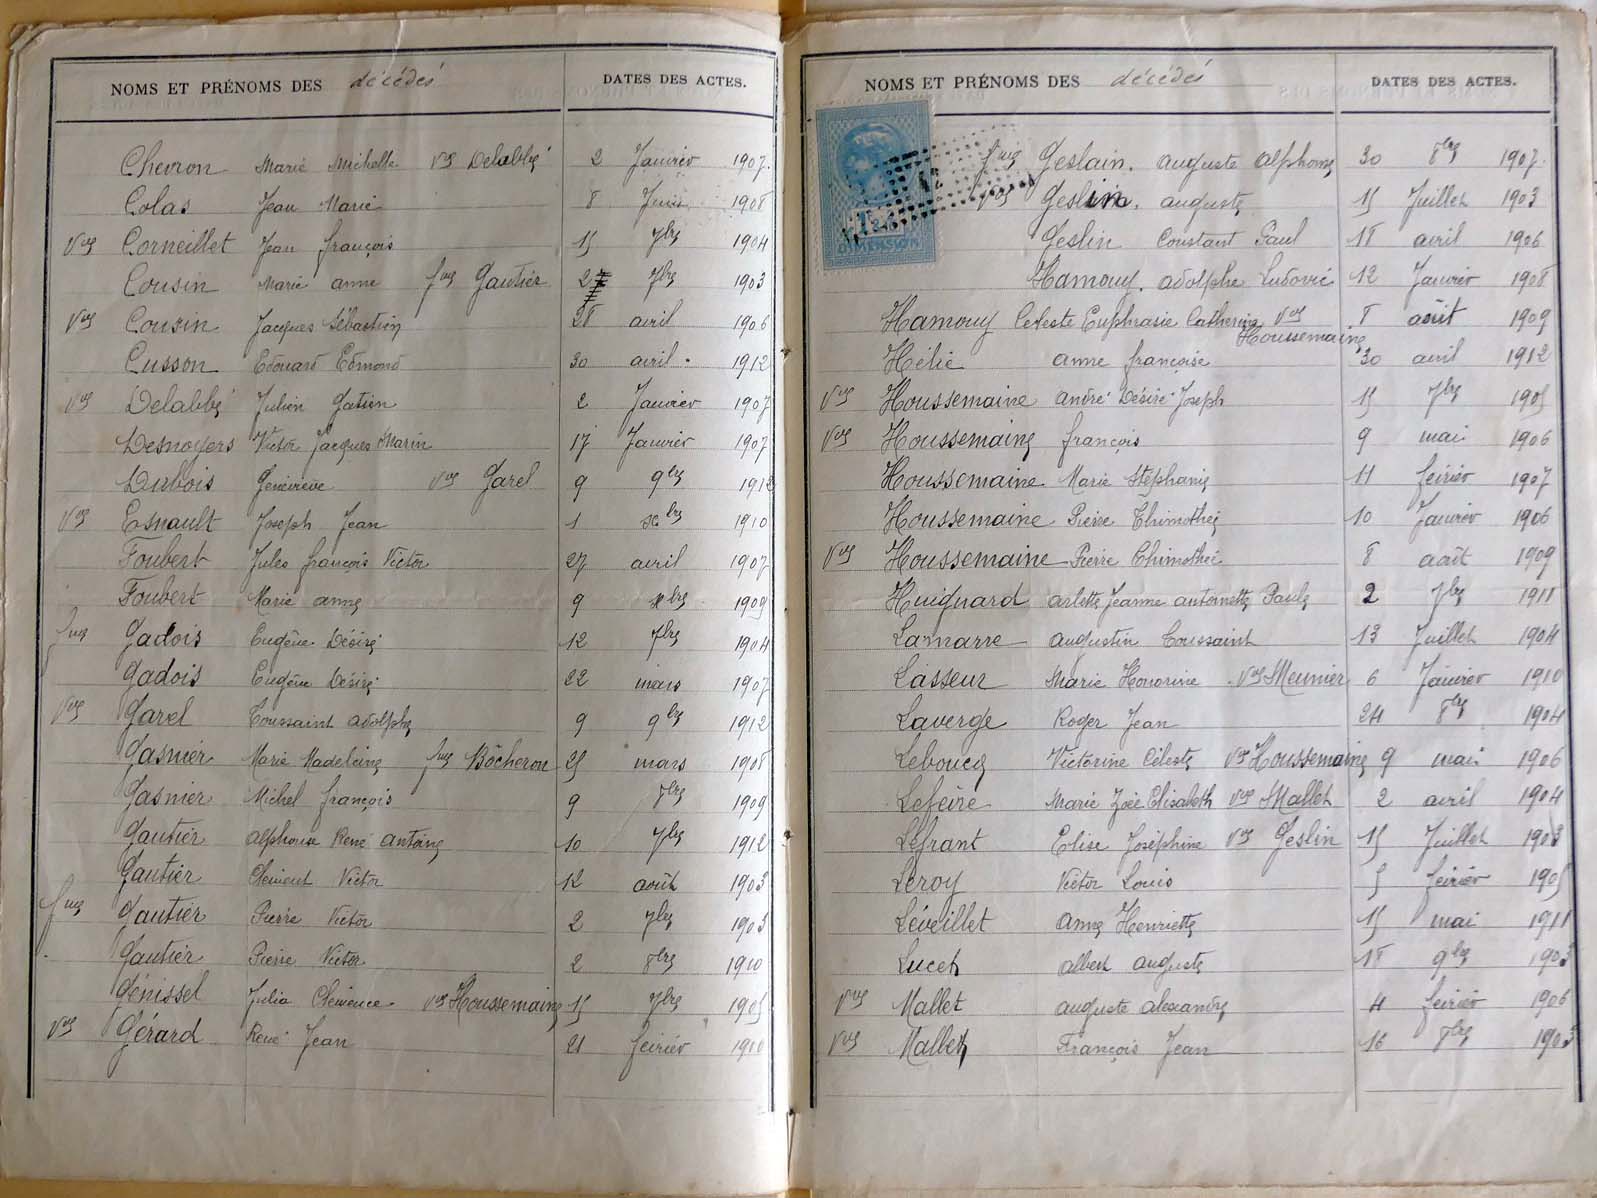 NOMS ET PRÉNOMS DES décédés DATES DES ACTES.
Chevron Marie Michelle Vve Delabbé 2 Janvier 1907.
Colas Jean Marie 8 Juin 1908
Vve Corneillet Jean françois 15 7bre 1904
Cousin Marie anne fme Gautier 2 7bre 1903
Vve Cousin Jacques Sébastien 28 avril 1906
Cusson Edouard Edmond 30 avril. 1912
Vve Delabbé Julien Gatien 2 Janvier 1907
Desnoyers Victor Jacques Marin 17 Janvier 1907
Dubois Geneviève Vve Garel 9 9bre 1912
Vve Esnault Joseph Jean 1 xbre 1910
Foubert Jules françois Victor 27 avril 1907
Foubert Marie anne 9 xbre 1909
fme Gadois Eugène Désiré 12 7bre 1904
Gadois Eugène Désiré 22 mars 1907
Vve Garel Toussaint adolphe 9 9bre 1912
Gasnier Marie Madeleine fme Bôcheron 25 mars 1908
Gasnier Michel françois 9 8bre 1909
Gautier alphonse René antoine 10 7bre 1912
Gautier Clément Victor 12 août 1903
fme Gautier Pierre Victor 2 7bre 1903
Gautier Pierre Victor 2 8bre 1910
Génissel Julia Clémence Vve Houssemaine 15 7bre 1905
Vve Gérard René Jean 21 feivier 1910
NOMS ET PRÉNOMS DES décédés DATES DES ACTES.
DIMENSION
fme Geslain. auguste alphonse 30 8bre 1907.
Vve Geslin. auguste 15 Juillet 1903
Geslin Constant Paul 18 avril 1906
Hamouy. adolphe Ludovic 12 Janvier 1908
Hamouy Céleste Euphrasie Catherine Vve Houssemaine 8 août 1909
Hélie anne françoise 30 avril 1912
Vve Houssemaine andré Désiré Joseph 15 7bre 1905
Vve Houssemaine françois 9 mai 1906
Houssemaine Marie Stéphanie 11 feivier 1907
Houssemaine Pierre Thimothée 10 Janvier 1906
Vve Houssemaine Pierre Thimothée 8 août 1909
Huignard arlette Jeanne antoinette Paule 2 7bre 1911
Lamarre augustin Toussaint 13 Juillet 1904
Lasseur Marie Honorine Vve Meunier 6 Janvier 1910
Laverge Roger Jean 24 8bre 1904
Leboucq Victorine Céleste Vve Houssemaine 9 mai 1906
Lefeivre Marie Zoé Elisabeth Vve Mallet 2 avril 1904
Lefrant Elise Joséphine Vve Geslin 15 Juillet 1903
Leroy Victor Louis 5 feivier 1905
Léveillet anne Henriette 15 mai 1911
Lucet albert auguste 18 9bre 1903
Vve Mallet auguste alexandre 4 feivier 1906
Vve Mallet François Jean 16 8bre 1903